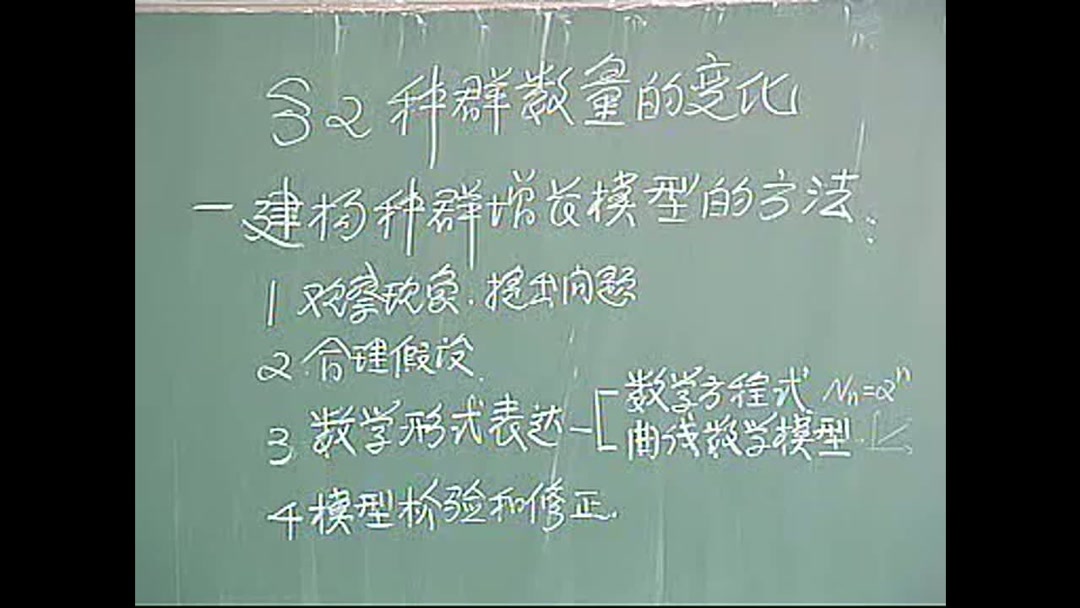 §2 种群数量的变化
一 建构种群增长模型的方法:
1 观察现象.提出问题
2.合理假设.
3.数学形式表达 数学方程式 Nn=2ⁿ
曲线数学模型.
4 模型检验和修正.